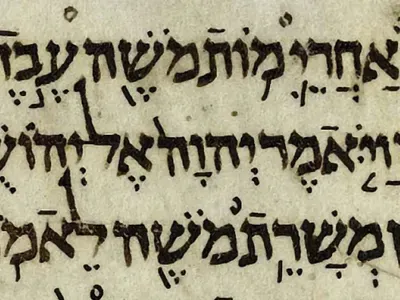 אַחֲרֵי מוֹת מֹשֶׁה עֶבֶד
וַיֹּאמֶר יְהוָה אֶל יְהוֹשֻׁ
ן מְשָׁרֵת מֹשֶׁה לֵאמֹ